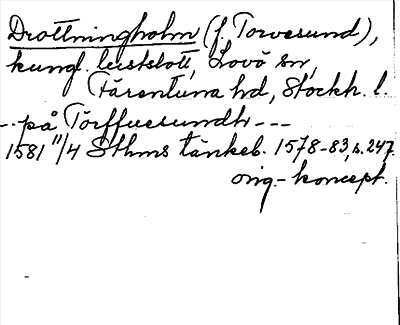 Drottningholm (f. Torvesund),
kungl. lustslott, Lovö sn,
Färentuna hd, Stockh. l.
-- på Torffuesundh ---
1581 11/4 Sthms tänkeb. 1578-83, s. 247.
orig.-koncept.